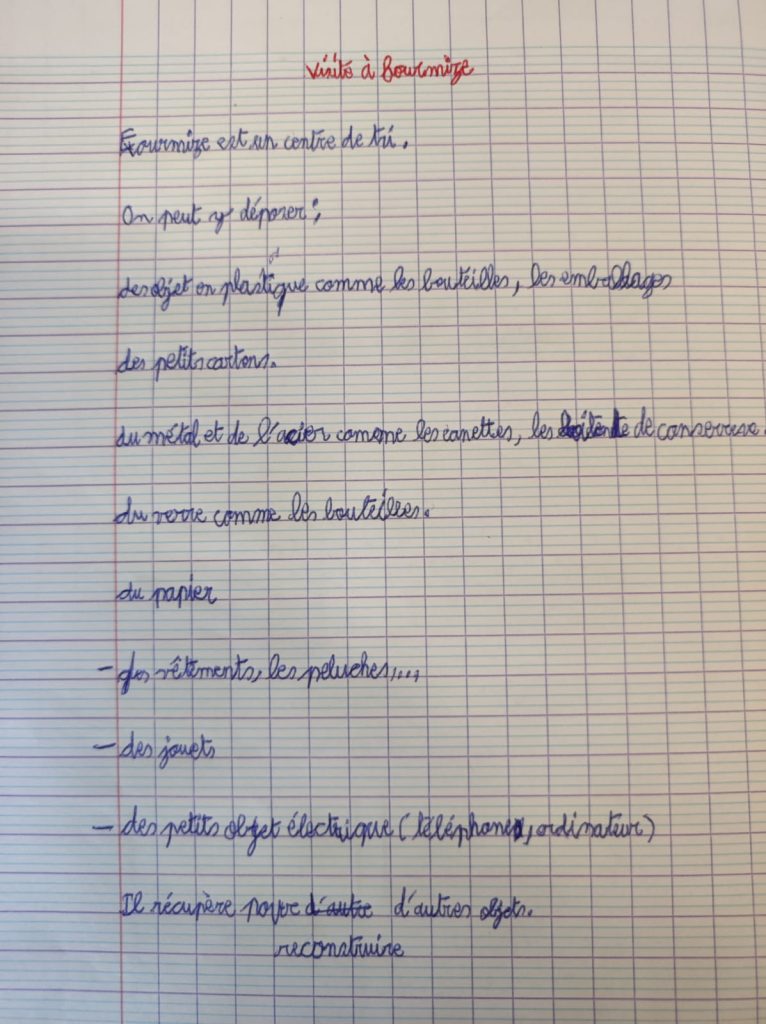 Visite à Fourmize
Fourmize est un centre de tri.
On peut y déposer :
des objet en plastique comme les bouteilles, les emballages
des petits cartons.
du métal et de l'acier comme les canettes, les de conserve.
du verre comme les bouteilles.
du papier
- des vêtements, les peluches,...
- des jouets
- des petits objet électrique ( téléphone, ordinateur)
Il récupère pour d'autre d'autres objets.
reconstruire